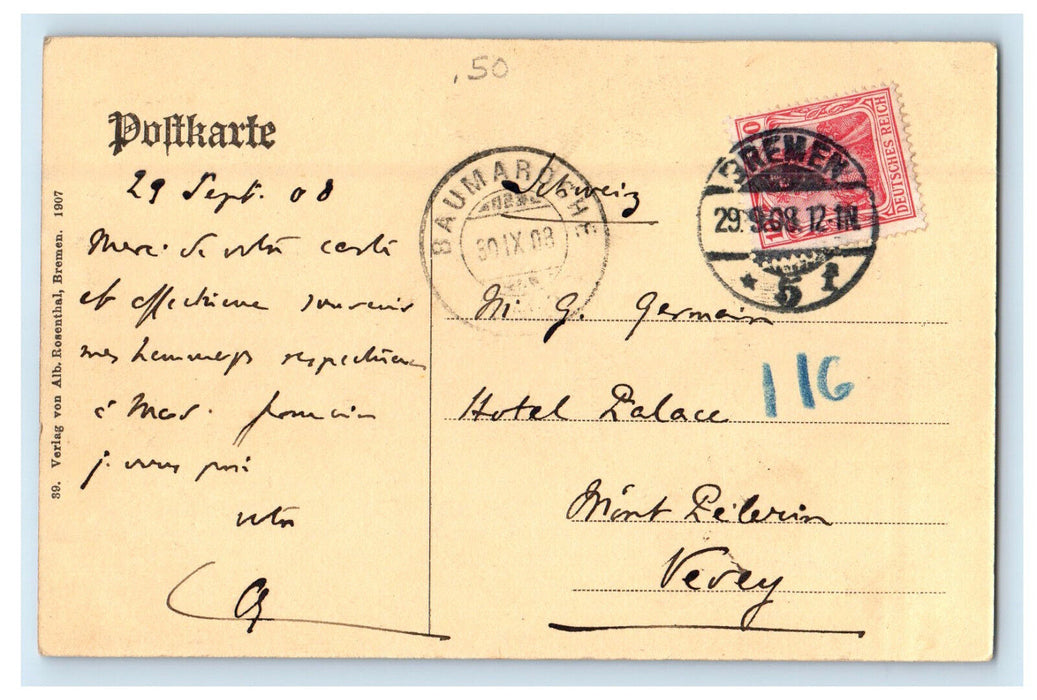 .50
Postkarte
29 Sept. 08
Merci de votre carte
et affectueux souvenirs
mes hommages respectueux
à Mad. Germain
je vous prie
votre
39. Verlag von Alb. Rosenthal, Bremen. 1907
BAUMAROCHE
30 IX 08
Schweiz
BREMEN
29.9.08.12-1N.
* 5 f
10
DEUTSCHES REICH
M. G. Germain
116
Hotel Palace
Mont Pélerin
Vevey